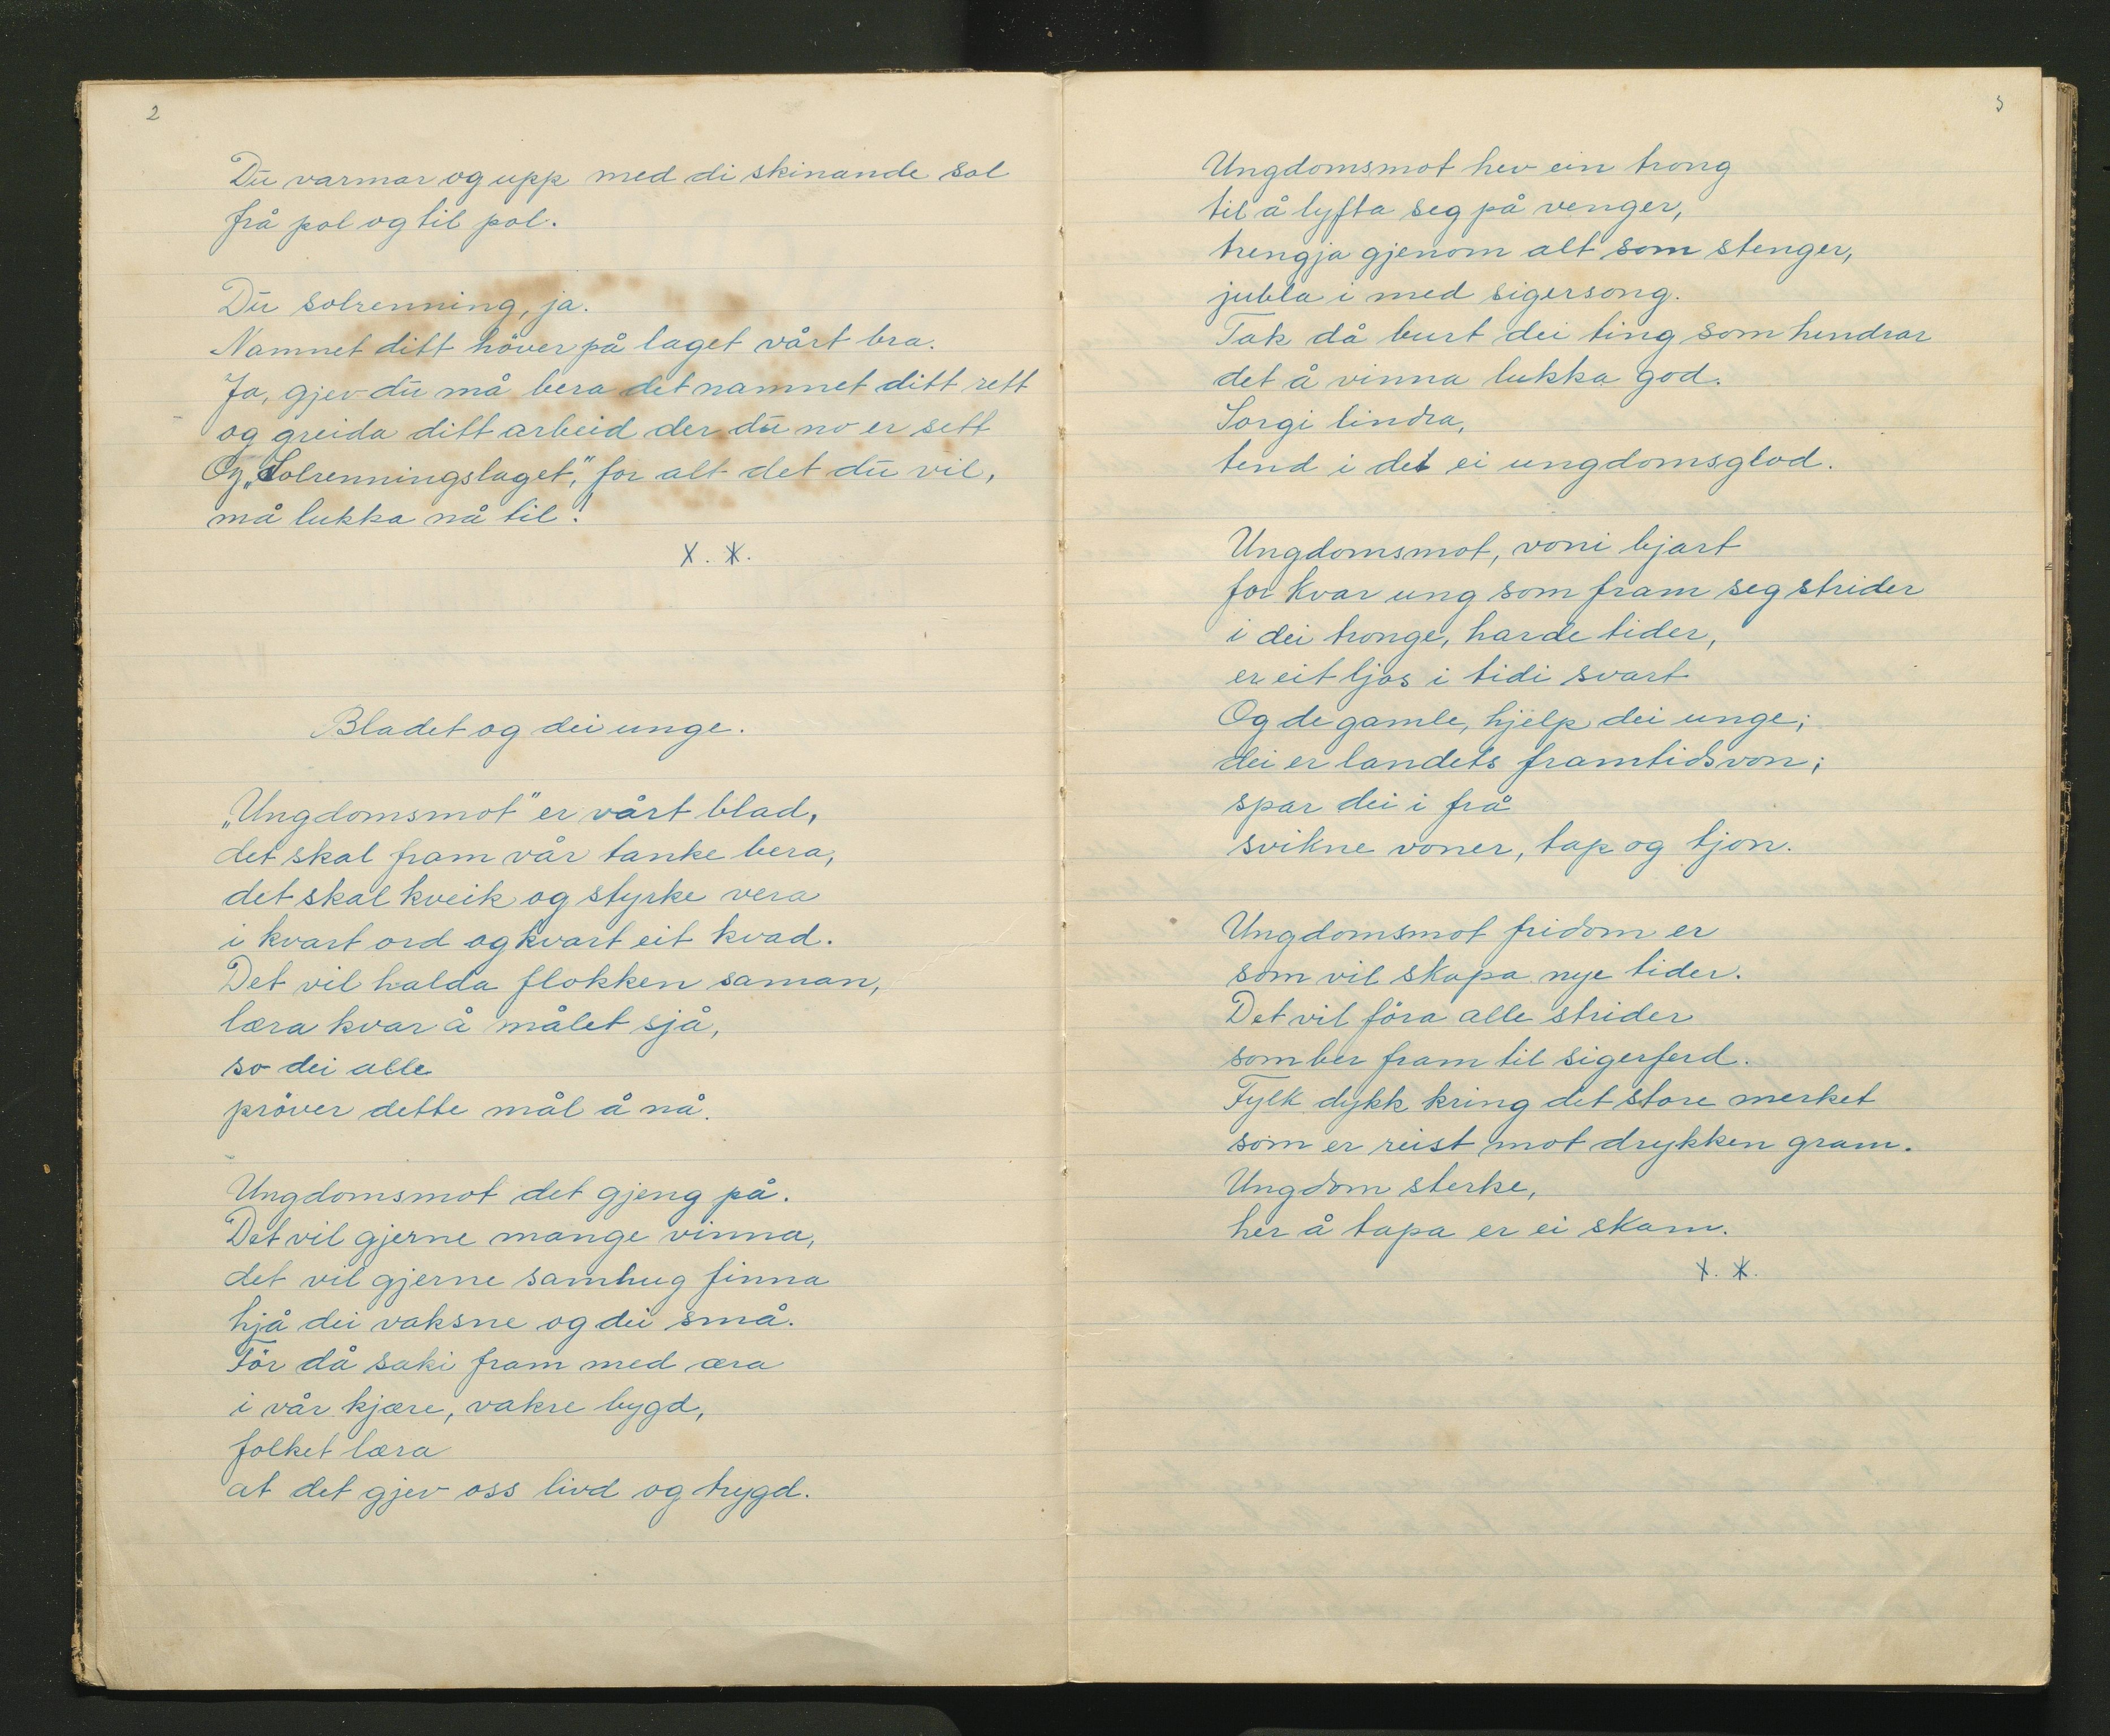 2
Du varmar og upp med di skinande sol
frå pol og til pol.
Du solrenning, ja.
Namnet ditt höver på laget vårt bra.
Ja, gjev du må bera det namnet ditt rett
og greida ditt arbeid der du no er sett
Og „Solrenningslaget", for alt det du vil,
må lukka nå til!
X. X.
Bladet og dei unge.
„Ungdomsmot" er vårt blad,
det skal fram vår tanke bera,
det skal kveik og styrke vera
i kvart ord og kvart eit kvad.
Det vil halda flokken saman,
læra kvar å målet sjå,
so dei alle
pröver dette mål å nå.
Ungdomsmot det gjeng på.
Det vil gjerne mange vinna,
det vil gjerne samhug finna
hjå dei vaksne og dei små.
För då saki fram med æra
i vår kjære, vakre bygd,
folket læra
at det gjev oss livd og trygd.
3
Ungdomsmot hev ein trong
til å lyfta seg på venger,
trengja gjenom alt som stenger,
jubla i med sigersong.
Tak då burt dei ting som hindrar
det å vinna lukka god.
Sorgi lindra,
tend i det ei ungdomsglod.
Ungdomsmot, voni bjart
for kvar ung som fram seg strider
i dei tronge, harde tider,
er eit ljos i tidi svart
Og de gamle, hjelp dei unge;
dei er landets framtidsvon;
spar dei i frå
svikne voner, tap og tjon.
Ungdomsmot fridom er
som vil skapa nye tider.
Det vil föra alle strider
som ber fram til sigerferd.
Fylk dykk kring det store merket
som er reist mot drykken gram.
Ungdom sterke,
her å tapa er ei skam.
X. X.